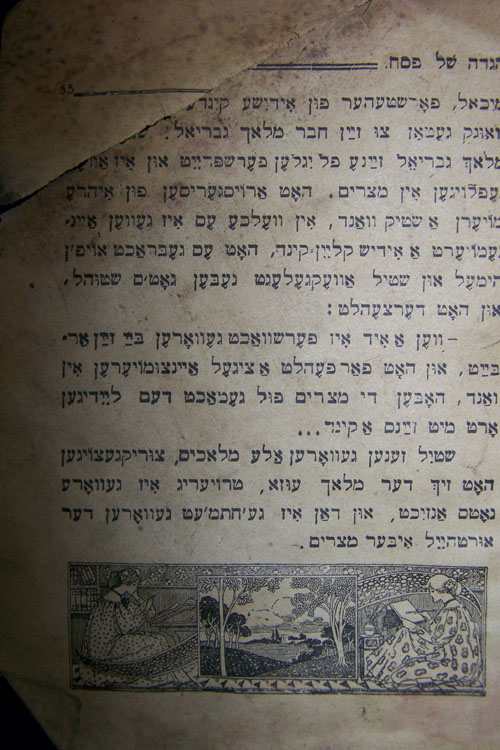 הגדה של פסח.
55
מיכאל, פאָרשטעהער פון אידישע קינדער
וואונק געטאָן צו זיין חבר מלאך גבריאל!
מלאך גבריאל זיינע פליגלען פערשפרייט און איז
געפלויגען אין מצרים. האָט ארויסגעריסען פון איהרע
מויערן אַ שטיק וואַנד, אין וועלכע עס איז געווען איינ־
געמויערט אַ אידיש קליין־קינד, האָט עס געבראַכט אויפ׳ן
הימעל און שטיל אוועקגעלעגט נעבען גאָט׳ס שטוהל,
און האָט דערצעהלט:
– ווען אַ איד איז פערשוואַכט געוואָרען ביי זיין אַר־
בייט, און האָט פאַרפעהלט אַ ציגעל איינצומויערען אין
וואַנד, האָבען די מצרים פול געמאַכט דעם ליידיגען
אָרט מיט זיינס אַ קינד...
שטיל זענען געוואָרען אַלע מלאכים, צוריקגעצויגען
האָט זיך דער מלאך עוזא, טרויעריג איז געוואָרע
גאָטס אַנזיכט, און דאַן איז גע׳חתמ׳עט געוואָרען דער
אורטהייל איבער מצרים.